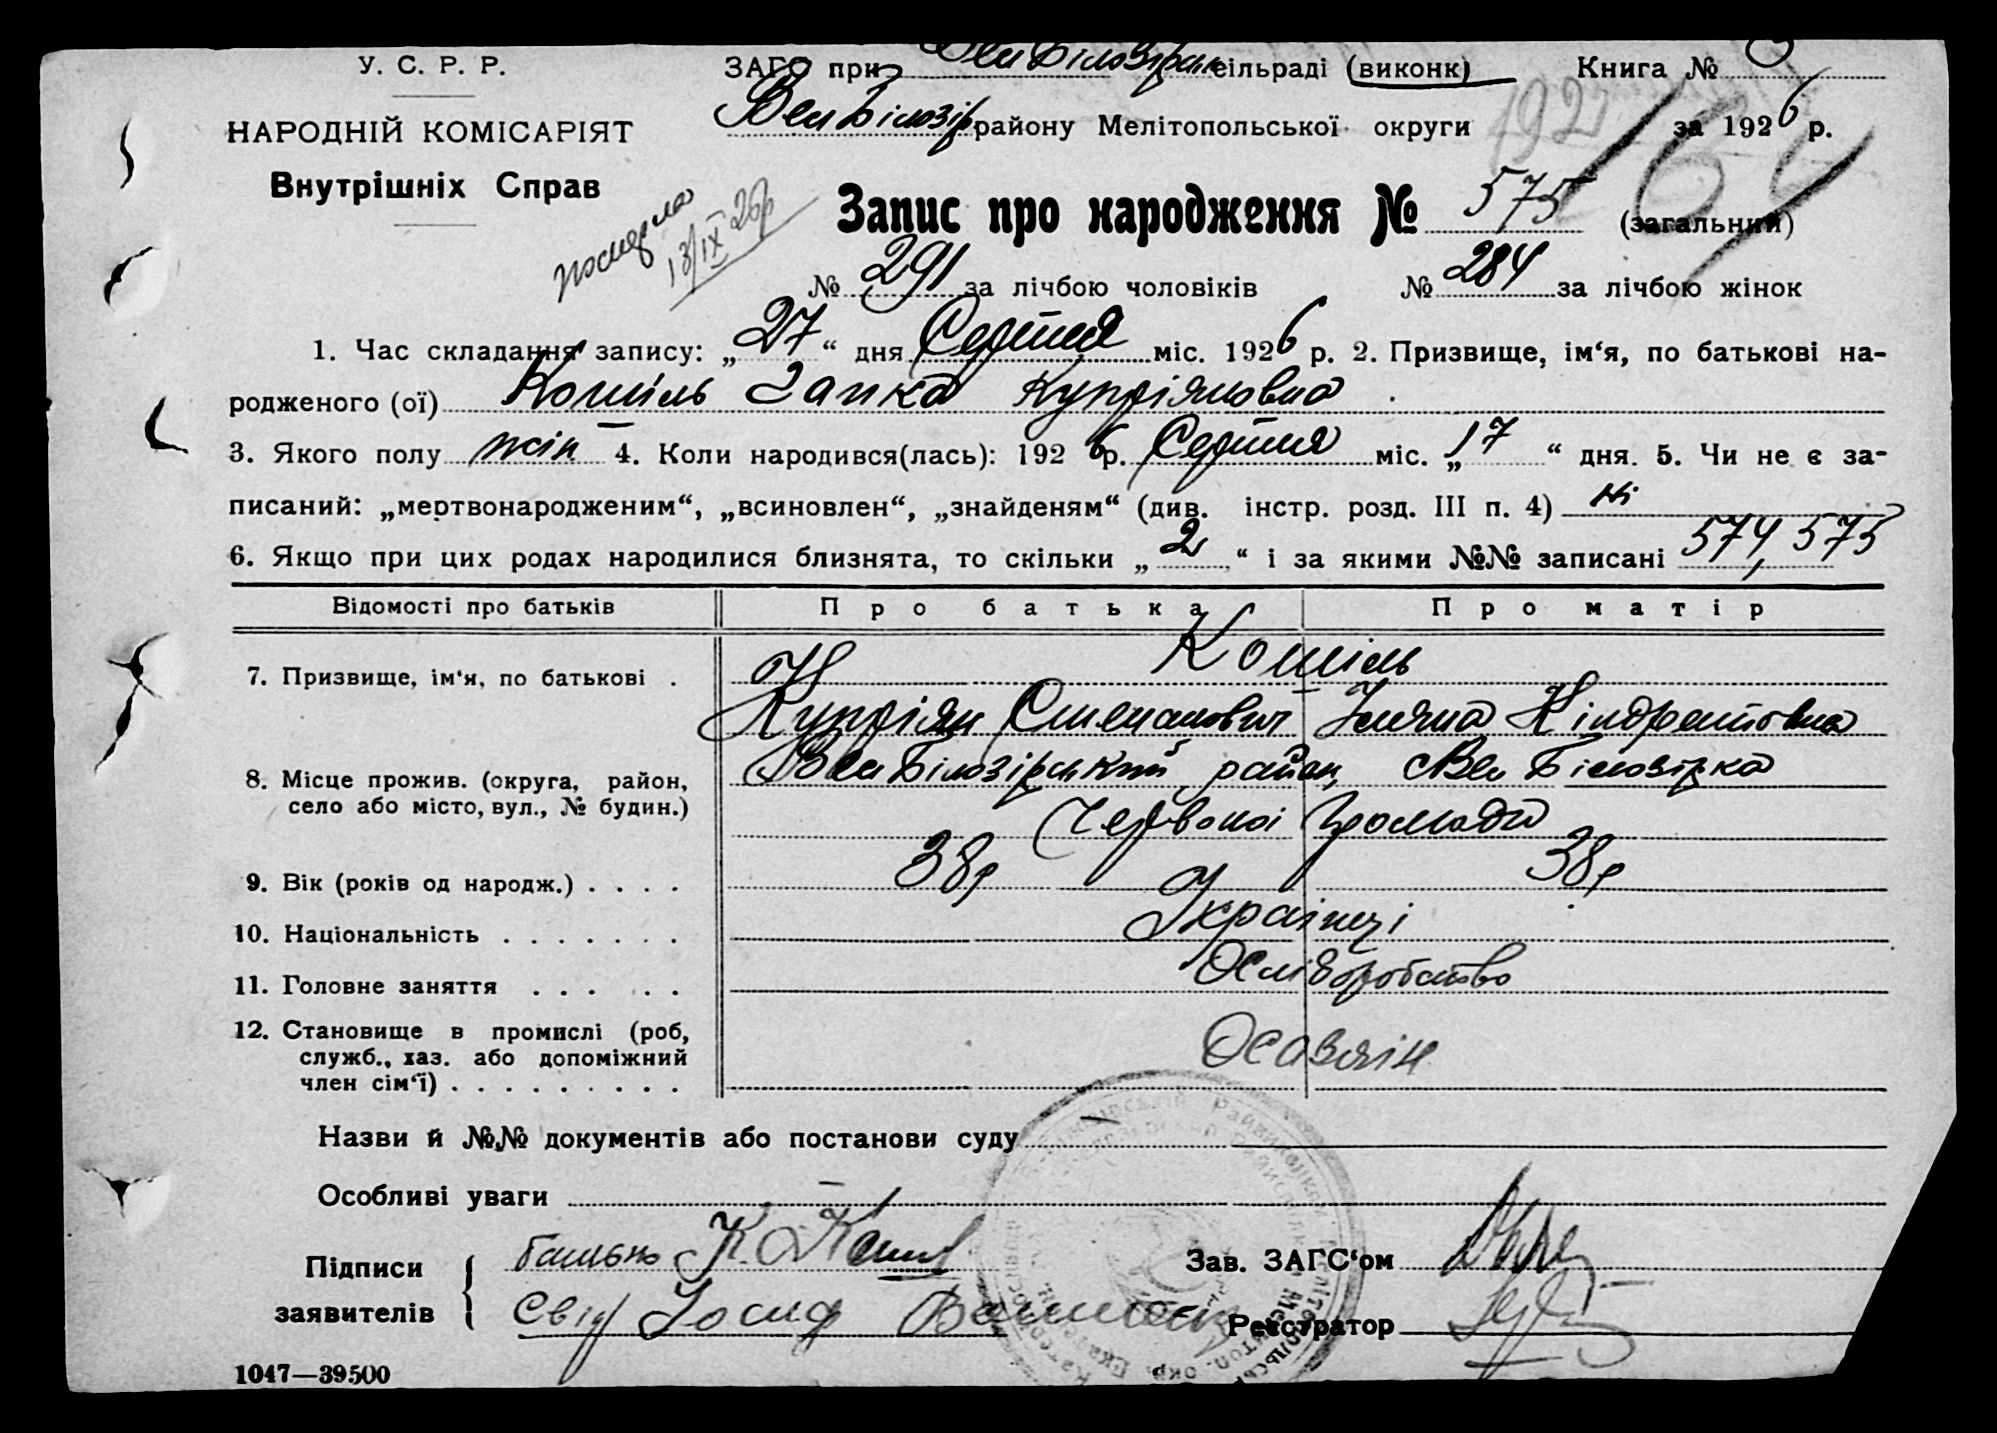 У. С. Р. Р.
НАРОДНІЙ КОМІСАРІЯТ
Внутрішніх Справ
ЗАГС при Вел Білозірк сільраді (виконк) Книга №
Вел Білозір району Мелітопольської округи за 1926 р.
померла
13/IX 26р
Запис про народження № 575 (загальний)
№ 291 за лічбою чоловіків № 284 за лічбою жінок
1. Час складання запису: „27“ дня Серпня міс. 1926 р. 2. Призвище, ім‘я, по батькові на-
родженого (ої) Кошіль Ганка Купріяновна
3. Якого полу жін 4. Коли народився(лась): 1926 р. Серпня міс. „17“ дня. 5. Чи не є за-
писаний: „мертвонародженим“, „всиновлен“, „знайденям“ (див. інстр. розд. III п. 4) ні
6. Якщо при цих родах народилися близнята, то скільки „2“ і за якими №№ записані 574, 575
Відомості про батьків Про батька Про матір
7. Призвище, ім‘я, по батькові . Кошіль
Купріян Степанович Уляна Кіндратовна
8. Місце прожив. (округа, район, село або місто, вул., № будин.) Вел Білозірський район, Вел Білозірка
Червоної Громади
9. Вік (років од народж.) . . . . 38р 38р
10. Національність . . . . . . . Українці
11. Головне заняття . . . . . Хліборобство
12. Становище в промислі (роб, служб., хаз. або допоміжний член сім‘ї) . . . . . . . . .
Назви й №№ документів або постанови суду —
Особливі уваги —
Підписи заявителів { батько К. Кошіль
Свід Йосиф
Зав. ЗАГС‘ом
Реєстратор
1047—39500